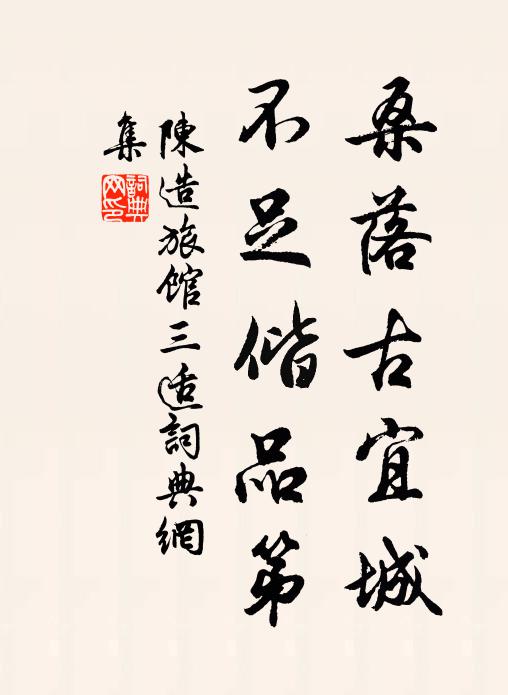 桑落古宜城
不足偕品第
陳造旅館三适詞典網
集
詞典
网印